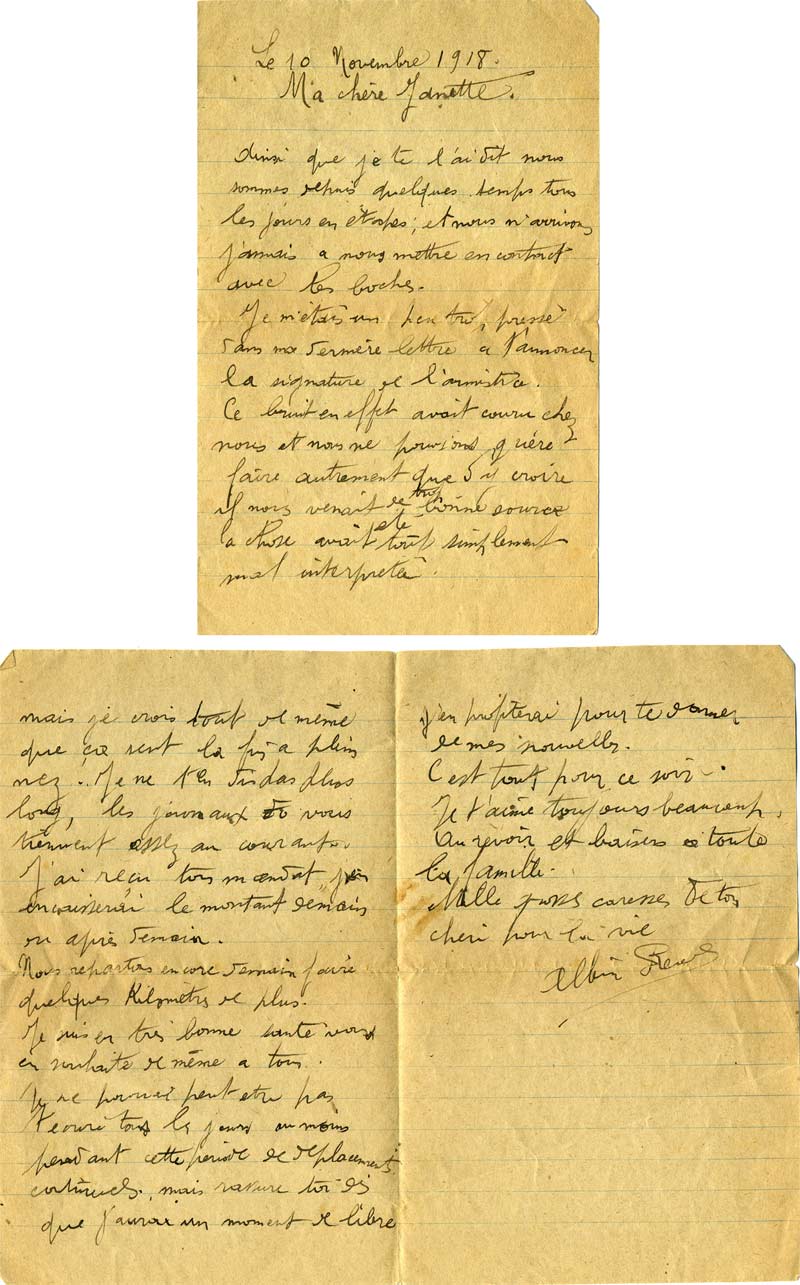 Le 10 Novembre 1918.
Ma chère Janette.
Ainsi que je te l'ai dit nous
sommes depuis quelques temps tous
les jours en étapes; et nous n'arrivons
jamais a nous mettre en contact
avec les boches.
Je m'étais un peu trop pressé
dans ma dernière lettre a t'annoncer
la signature de l'armistice.
Ce bruit en effet avait couru chez
nous et nous ne pouvions guère
faire autrement que d'y croire
il nous venait de trop bonne source
la chose avait été tout simplement
mal interpretée.
mais je crois tout de même
que ça sent la fin a plein
nez. Je ne t'en dis pas plus
long, les journaux vous
tiennent assez au courant.
J'ai reçu ton mandat j'en
encaisserai le montant demain
ou après demain.
Nous repartons encore demain faire
quelques Kilomètres de plus.
Je suis en très bonne santé vous
en souhaite de même a tous.
Je ne pourrai peut etre pas
t'ecrire tous les jours au moins
pendant cette periode de deplacements
continuels, mais rassure toi dès
que j'aurai un moment de libre
j'en profiterai pour te donner
de mes nouvelles.
C'est tout pour ce soir.
Je t'aime toujours beaucoup.
Au revoir et baisers a toute
la famille.
Mille grosses caresses de ton
cheri pour la vie
Albin